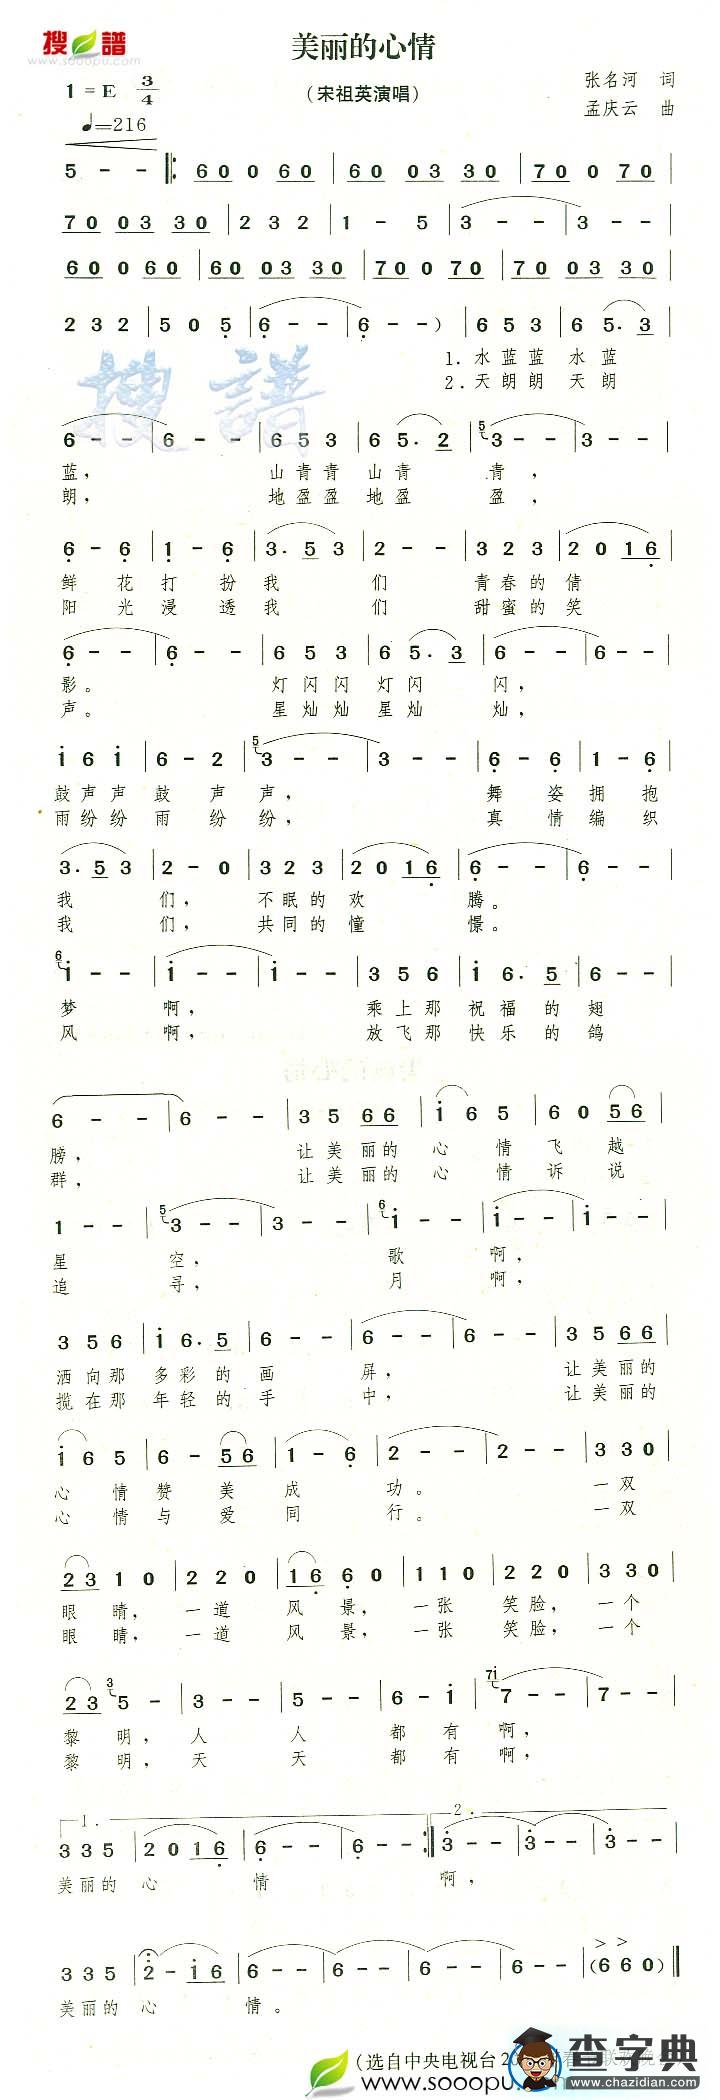 搜谱
www.sooopu.com
美丽的心情
1 = E 3/4
（宋祖英演唱）
张名河 词
♩=216
孟庆云 曲
5 - - ‖: 60 0 60 | 60 03 30 | 70 0 70 |
70 03 30 | 2 3 2 | 1 - 5 | 3 - - | 3 - - |
60 0 60 | 60 03 30 | 70 0 70 | 70 03 30 |
2 3 2 | 5 0 5 | 6 - - | 6 - - ） | 6 5 3 | 6 5. 3 |
1.水 蓝 蓝 水 蓝
2.天 朗 朗 天 朗
搜 譜
6 - - | 6 - - | 6 5 3 | 6 5. 2 | 5 3 - - | 3 - - |
蓝， 山 青 青 山 青 青，
朗， 地 盈 盈 地 盈 盈，
6 - 6 | 1 - 6 | 3. 5 3 | 2 - - | 3 2 3 | 2 0 1 6 |
鲜 花 打 扮 我 们 青 春 的 倩
阳 光 浸 透 我 们 甜 蜜 的 笑
6 - - | 6 - - | 6 5 3 | 6 5. 3 | 6 - - | 6 - - |
影。 灯 闪 闪 灯 闪 闪，
声。 星 灿 灿 星 灿 灿，
i 6 i | 6 - 2 | 5 3 - - | 3 - - | 6 - 6 | 1 - 6 |
鼓 声 声 鼓 声 声， 舞 姿 拥 抱
雨 纷 纷 雨 纷 纷， 真 情 编 织
3. 5 3 | 2 - 0 | 3 2 3 | 2 0 1 6 | 6 - - | 6 - - |
我 们， 不 眠 的 欢 腾。
我 们， 共 同 的 憧 憬。
6 i - - | i - - | i - - | 3 5 6 | i 6. 5 | 6 - - |
梦 啊， 乘 上 那 祝 福 的 翅
风 啊， 放 飞 那 快 乐 的 鸽
6 - - | 6 - - | 3 5 6 6 | i 6 5 | 6 0 5 6 |
膀， 让 美 丽 的 心 情 飞 越
群， 让 美 丽 的 心 情 诉 说
1 - - | 5 3 - - | 3 - - | 6 i - - | i - - | i - - |
星 空， 歌 啊，
追 寻， 月 啊，
3 5 6 | i 6. 5 | 6 - - | 6 - - | 6 - - | 3 5 6 6 |
洒 向 那 多 彩 的 画 屏， 让 美 丽 的
揽 在 那 年 轻 的 手 中， 让 美 丽 的
i 6 5 | 6 - 5 6 | 1 - 6 | 2 - - | 2 - - | 3 3 0 |
心 情 赞 美 成 功。 一 双
心 情 与 爱 同 行。 一 双
2 3 1 0 | 2 2 0 | 1 6 6 0 | 1 1 0 | 2 2 0 | 3 3 0 |
眼 睛， 一 道 风 景， 一 张 笑 脸， 一 个
眼 睛， 一 道 风 景， 一 张 笑 脸， 一 个
2 3 3 5 - | 3 - - | 5 - - | 6 - i | 7i 7 - - | 7 - - |
黎 明， 人 人 都 有 啊，
黎 明， 天 天 都 有 啊，
1. 2.
3 3 5 | 2 0 1 6 | 6 - - | 6 - - :‖ 3 - - | 3 - - | 3 - - |
美 丽 的 心 情 啊，
3 3 5 | 2 - i 6 | 6 - - | 6 - - | 6 - - | 6 - - | (6 6 0) ‖
美 丽 的 心 情。
（选自中央电视台20
www.sooopu
查字典
www.chazidian.com